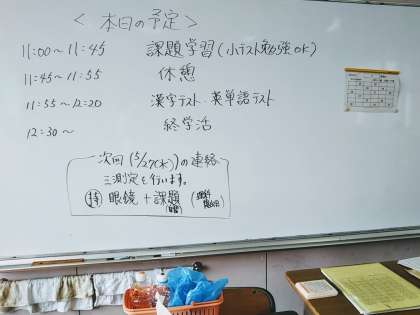 ＜本日の予定＞
11:00～11:45 課題学習(小テスト勉強OK)
11:45～11:55 休憩
11:55～12:20 漢字テスト・英単語テスト
12:30～ 終学活
次回(5/27(木))の連絡
三測定を行います。
持 眼鏡+課題